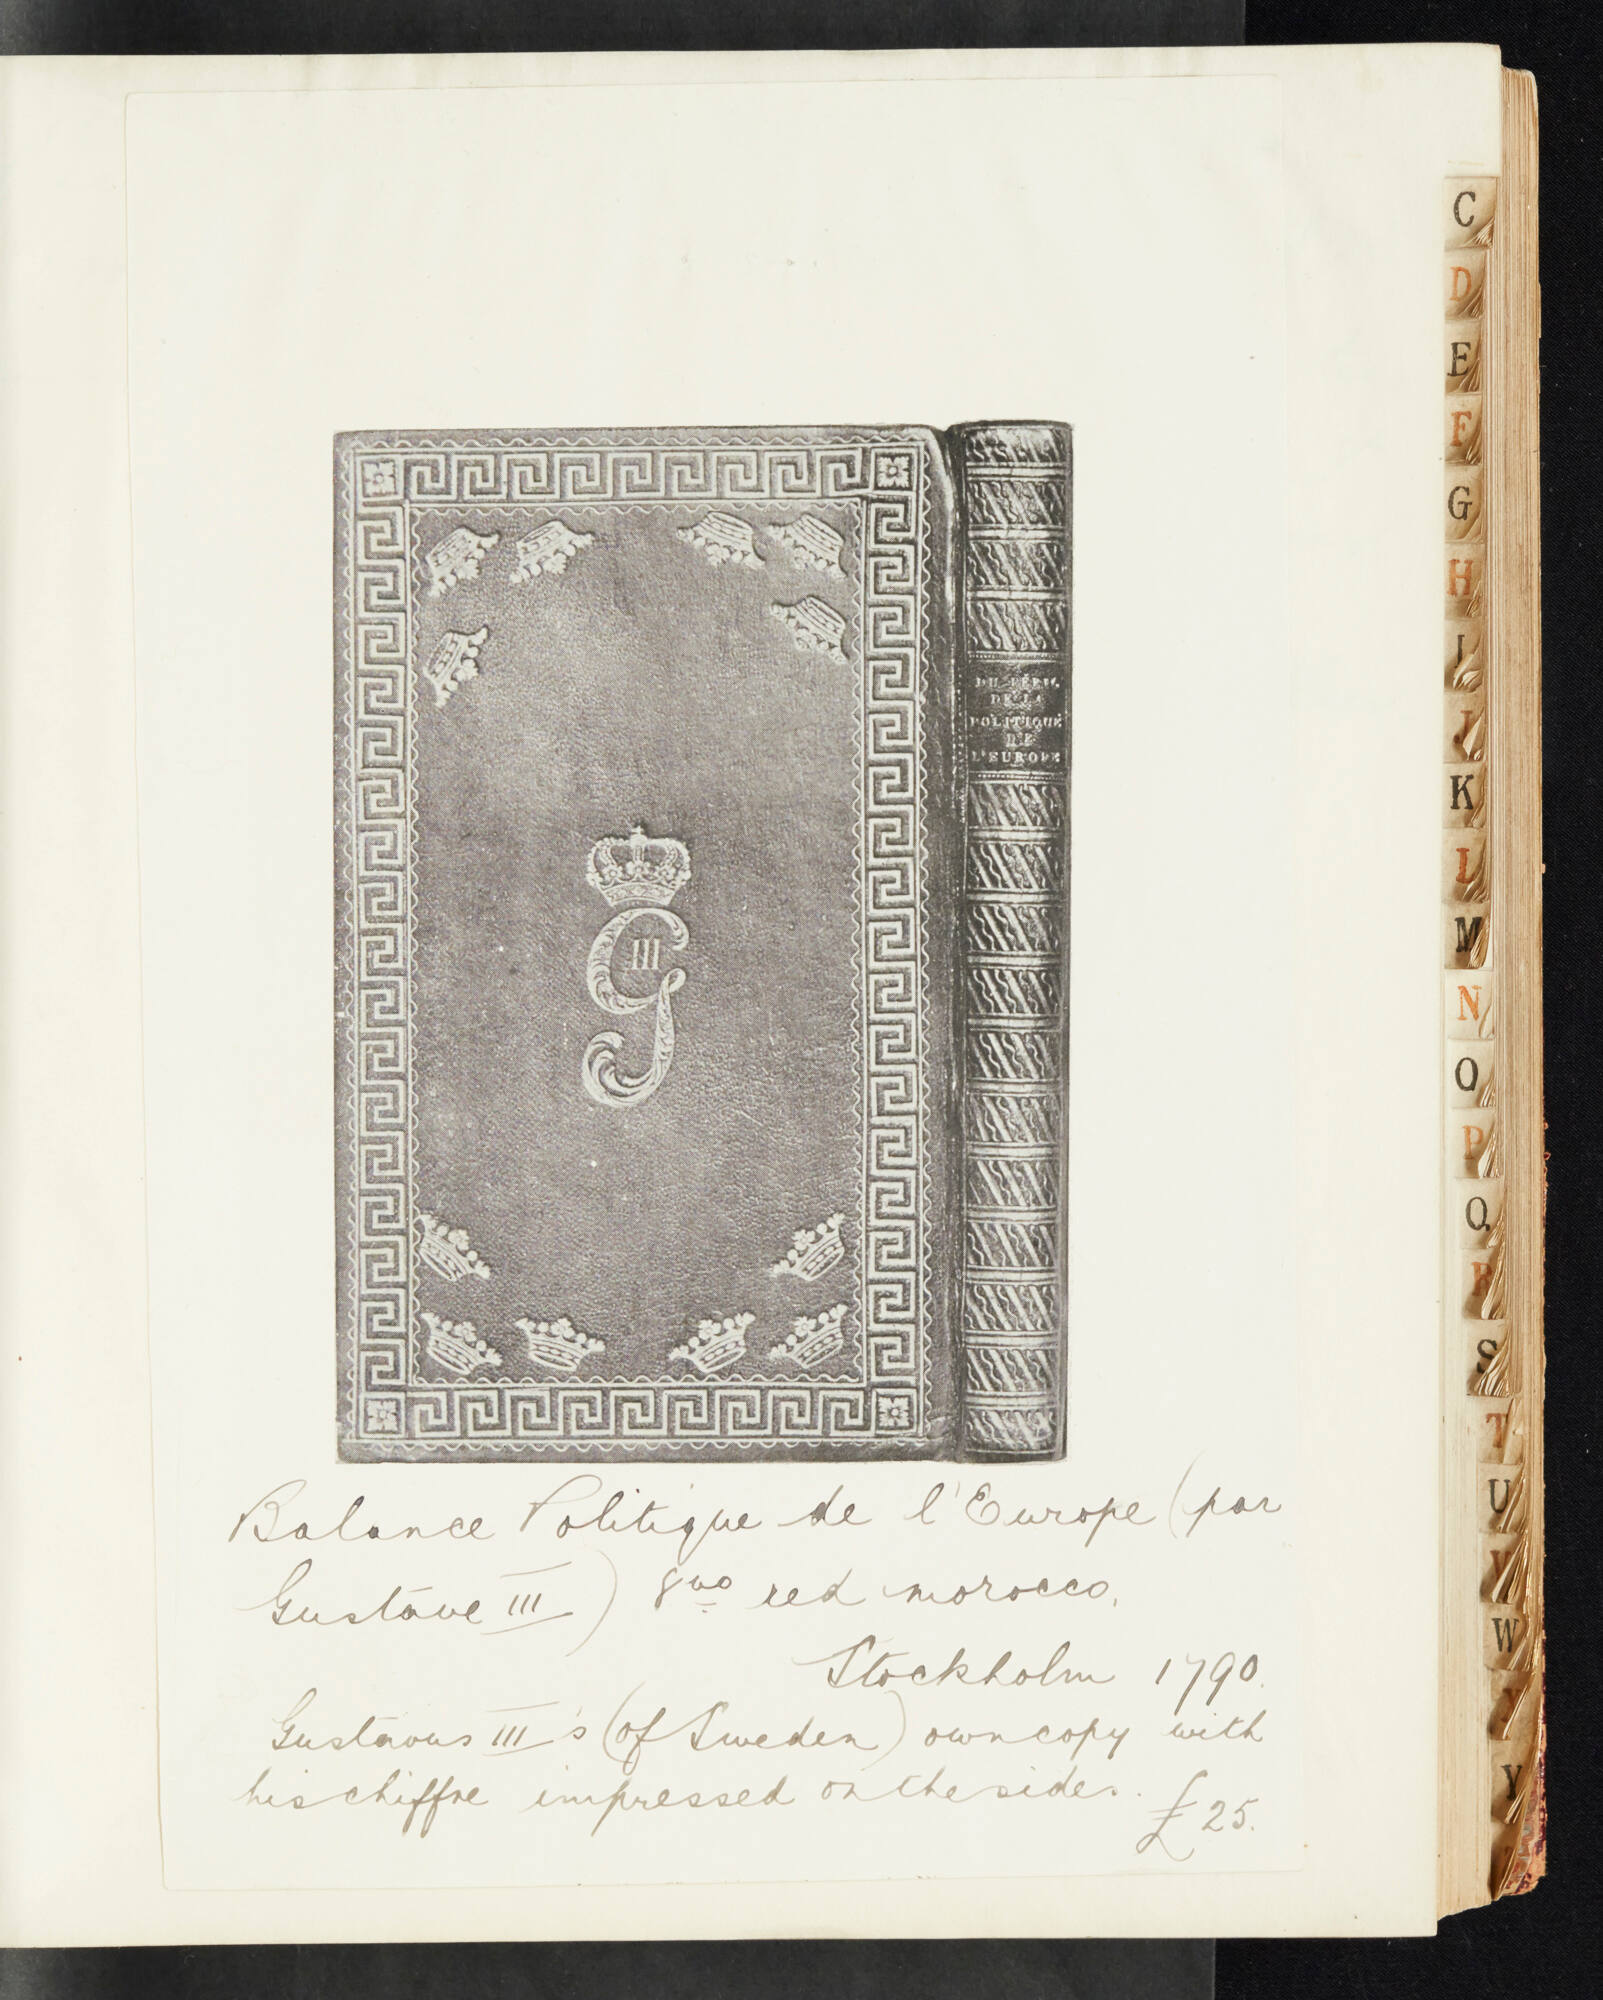 C
D
E
F
G
H
I
J
K
L
M
N
O
P
Q
R
S
T
U
V
W
X
Y
III
DU PERIL
DE LA
POLITIQUE
DE
L'EUROPE
Balance Politique de l'Europe (par
Gustave III) 8vo red morocco.
Stockholm 1790.
Gustavus III's (of Sweden) own copy with
his chiffre impressed on the sides.
£25.